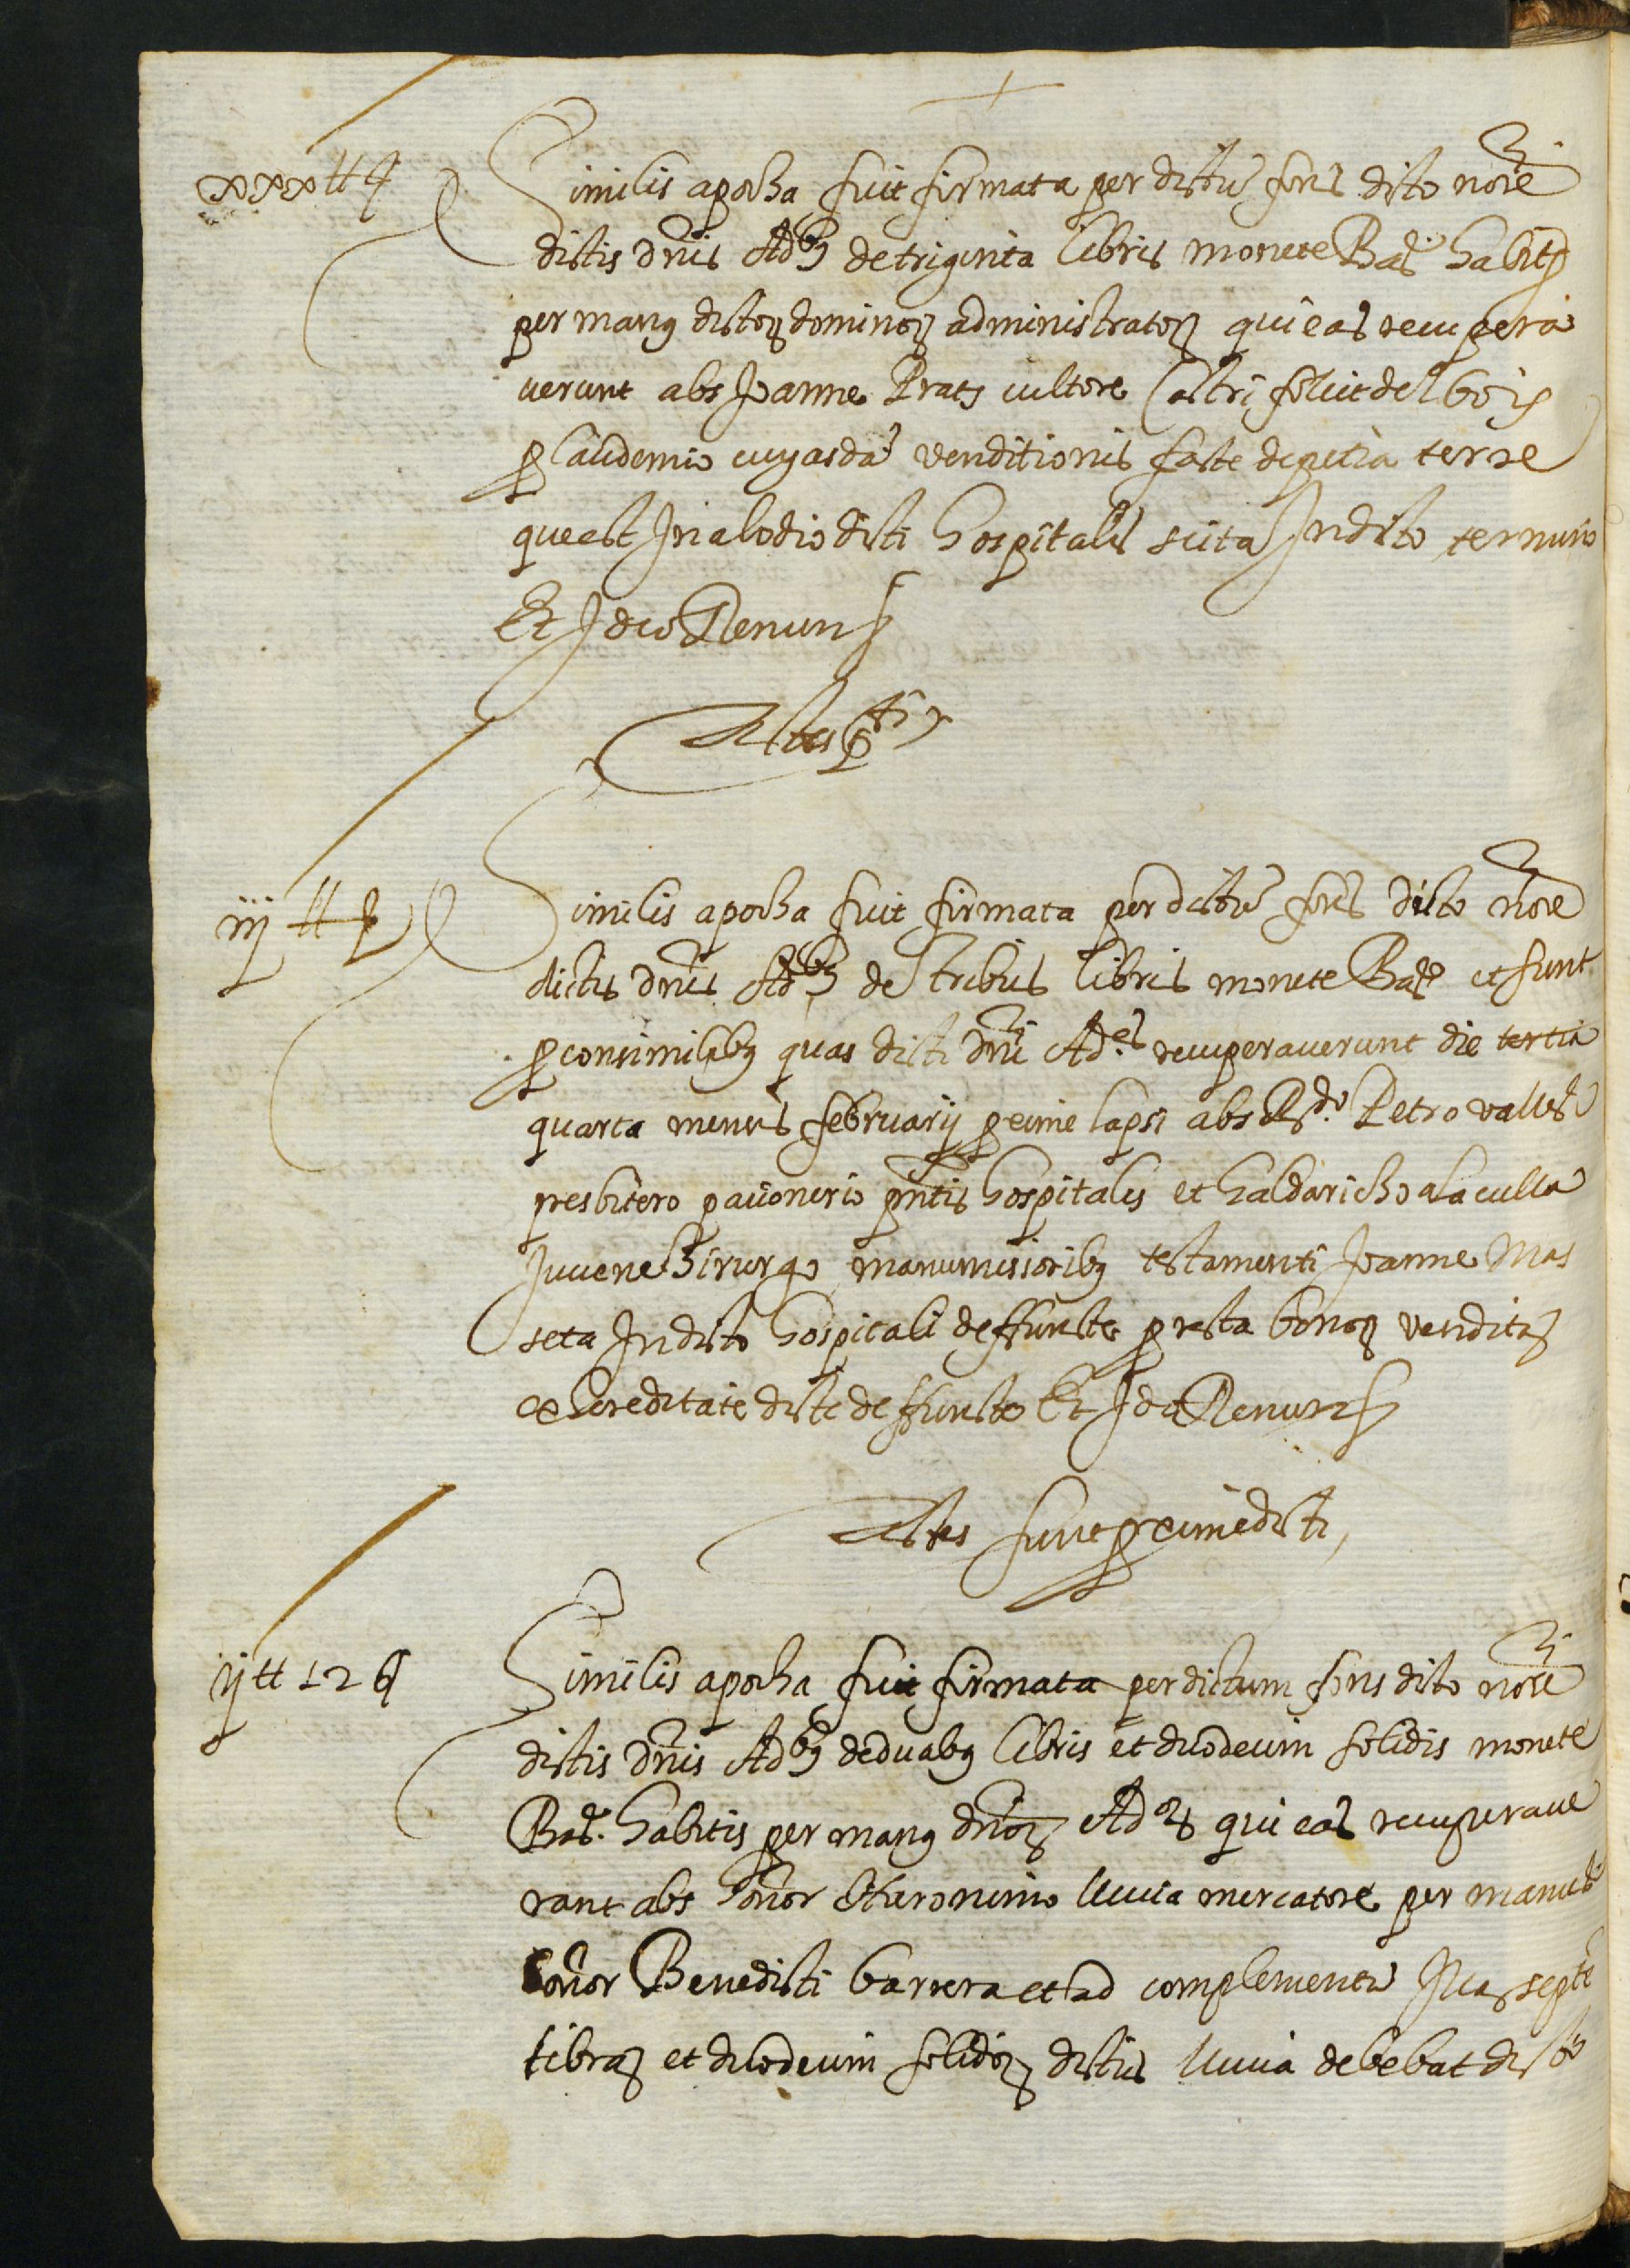 +
xxx ll ꝭ Similis apocha fuit firmata per dictũ fons dicto nõie
dictis dñis Adbꝰ de triginta libris monete Bar̃ habitꝭ
per manꝰ dictoꝝ dominoꝝ administratoꝝ qui eas recupera
uerunt abs Joanne Prats cultore Castri foliit del boix
ꝓ laudemio cuyasdã venditionis facte de petia terre
que est In alodio dicti hospitalis scita Indicto termino
Et Ideo Renunꝭ
Testes ꝓti
iij ll ꝭ Similis apocha fuit firmata per dictũ fons dicto nõie
dictis dñis Adbꝰ de tribus libris monete Barꝭ et sunt
ꝓ consimilibꝰ quas dicti dñi Ad.es recuperauerunt die tertia
quarta mensis februarij ꝓxime lapsi abs Rdo. Petro valles
presbitero pauonerio pñtis hospitalis et Galdaricho alaculla
Juuene Chirurgo manumissoribꝰ testamenti Joanne Mas
seta Indicto hospitali deffuncte ꝓ resta bonoꝝ venditoꝝ
ex hereditate dicte deffuncte Et Ideo Renunꝭ
Testes sunt ꝓxime dicti
ij ll 12 ꝭ Similis apocha fuit firmata per dictum fons dicto nõie
dictis dñis Adbꝰ de duabꝰ libris et duodecim solidis monete
Bar̃. habitis per manꝰ dñoꝝ Adoꝝ qui eas recuperaue
rant abs honor Hieronimo lluuia mercatore per manus
honor Benedicti barrera et ad complementũ Illaꝝ septẽ
libraꝝ et duodecim solidoꝝ dictus lluuia debebat dicto